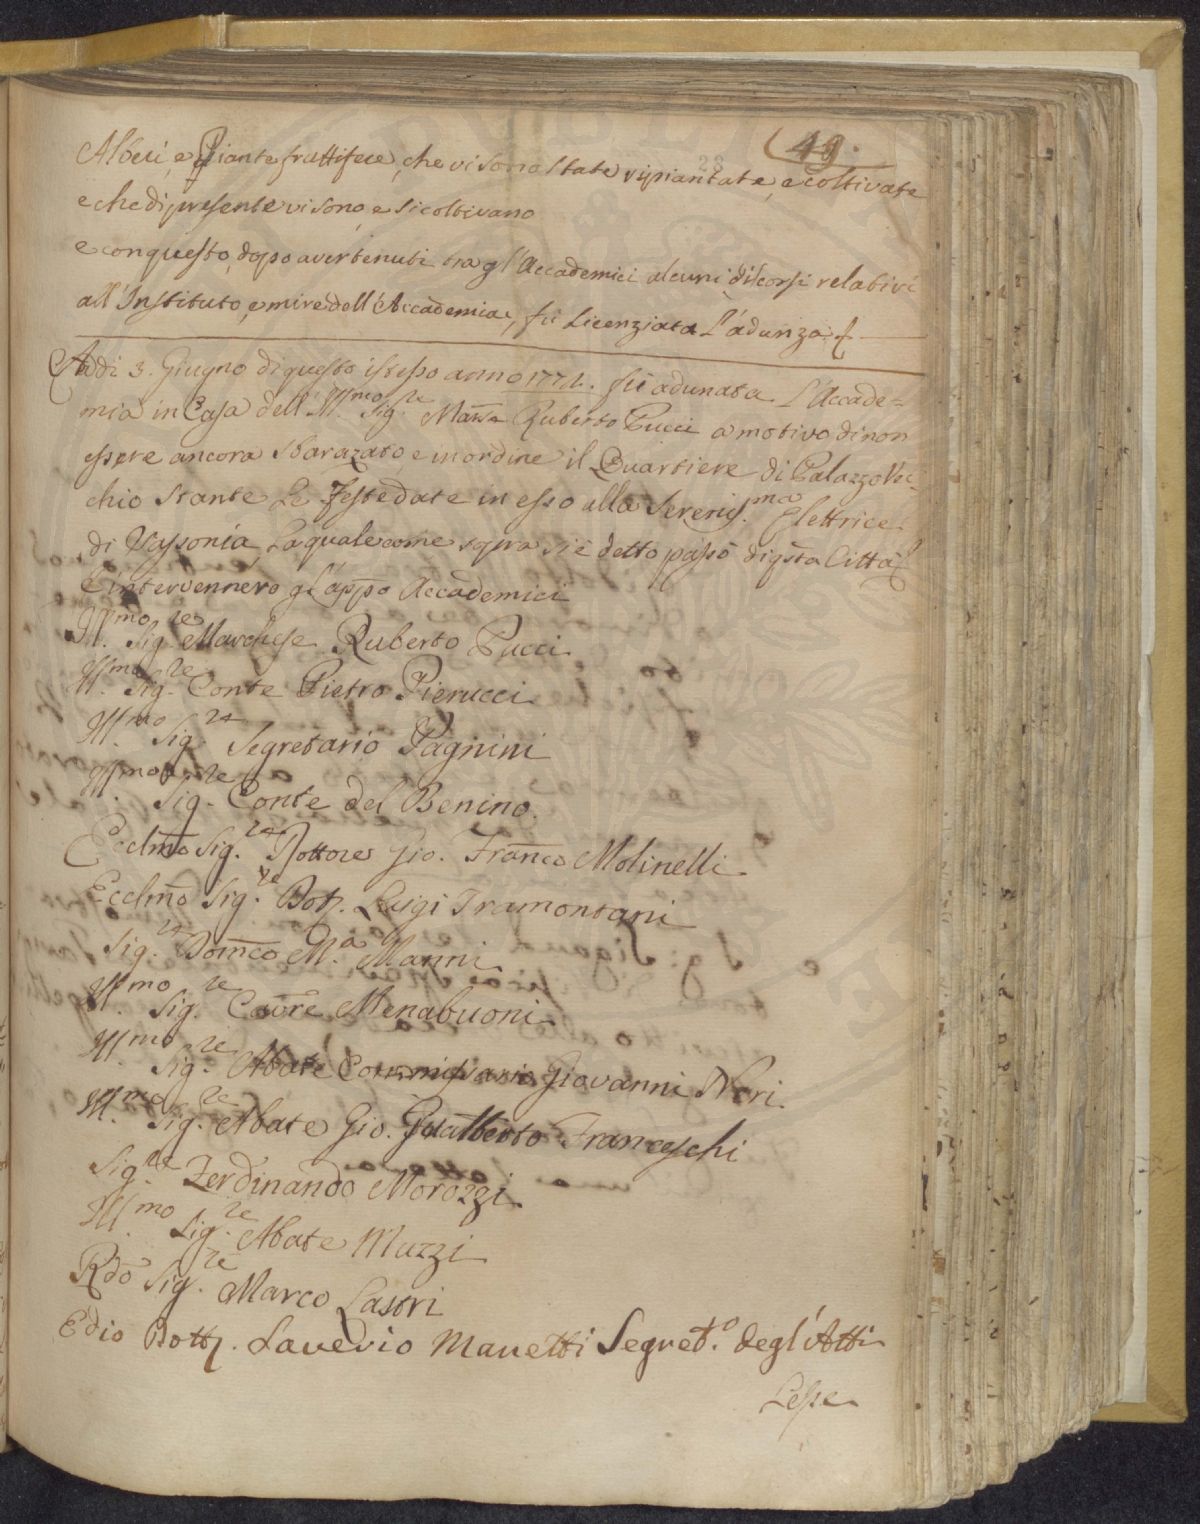 49.
28
Alberi, e Piante fruttifere, che vi sono state ripiantate, e coltivate
e che di presente vi sono, e si coltivano
e con questo, dopo aver tenuti tra gl'Accademici alcuni discorsi relativi
all'Instituto, e mire dell'Accademia, fù Licenziata l'adunza
Addì 3. Giugno di questo istesso anno 1772. fù adunata l'Accade-
mia in Casa dell'Ill.mo Sig.re Marse Ruberto Pucci a motivo di non
essere ancora sbarazato, e in ordine il Quartiere di Palazzo Vec-
chio stante Le Feste date in esso alla Sereniss.ma Elettrice
di Sassonia, La quale come sopra si è detto passò di qsta Città
E intervennero gl'appo Accademici
Ill.mo Sig.re Marchese Ruberto Pucci
Ill.mo Sig.re Conte Pietro Pierucci
Ill.mo Sig.re Segretario Pagnini
Ill.mo Sig.re Conte del Benino.
Ecclmo Sig.re Dottore Gio. Franco Molinelli
Ecclmo Sig.re Dott. Luigi Tramontani
Sig.re Domco M.a Manni
Ill.mo Sig.re Cavre Menabuoni
Ill.mo Sig.re Abate Commissario Giovanni Neri
Ill.mo Sig.re Abate Gio. Gualberto Franceschi
Sig.re Ferdinando Morozzi
Ill.mo Sig.re Abate Muzzi
Rdo Sig.re Marco Lastri
Ed io Dott. Saverio Manetti Segret.o degl'Atti
Lesse